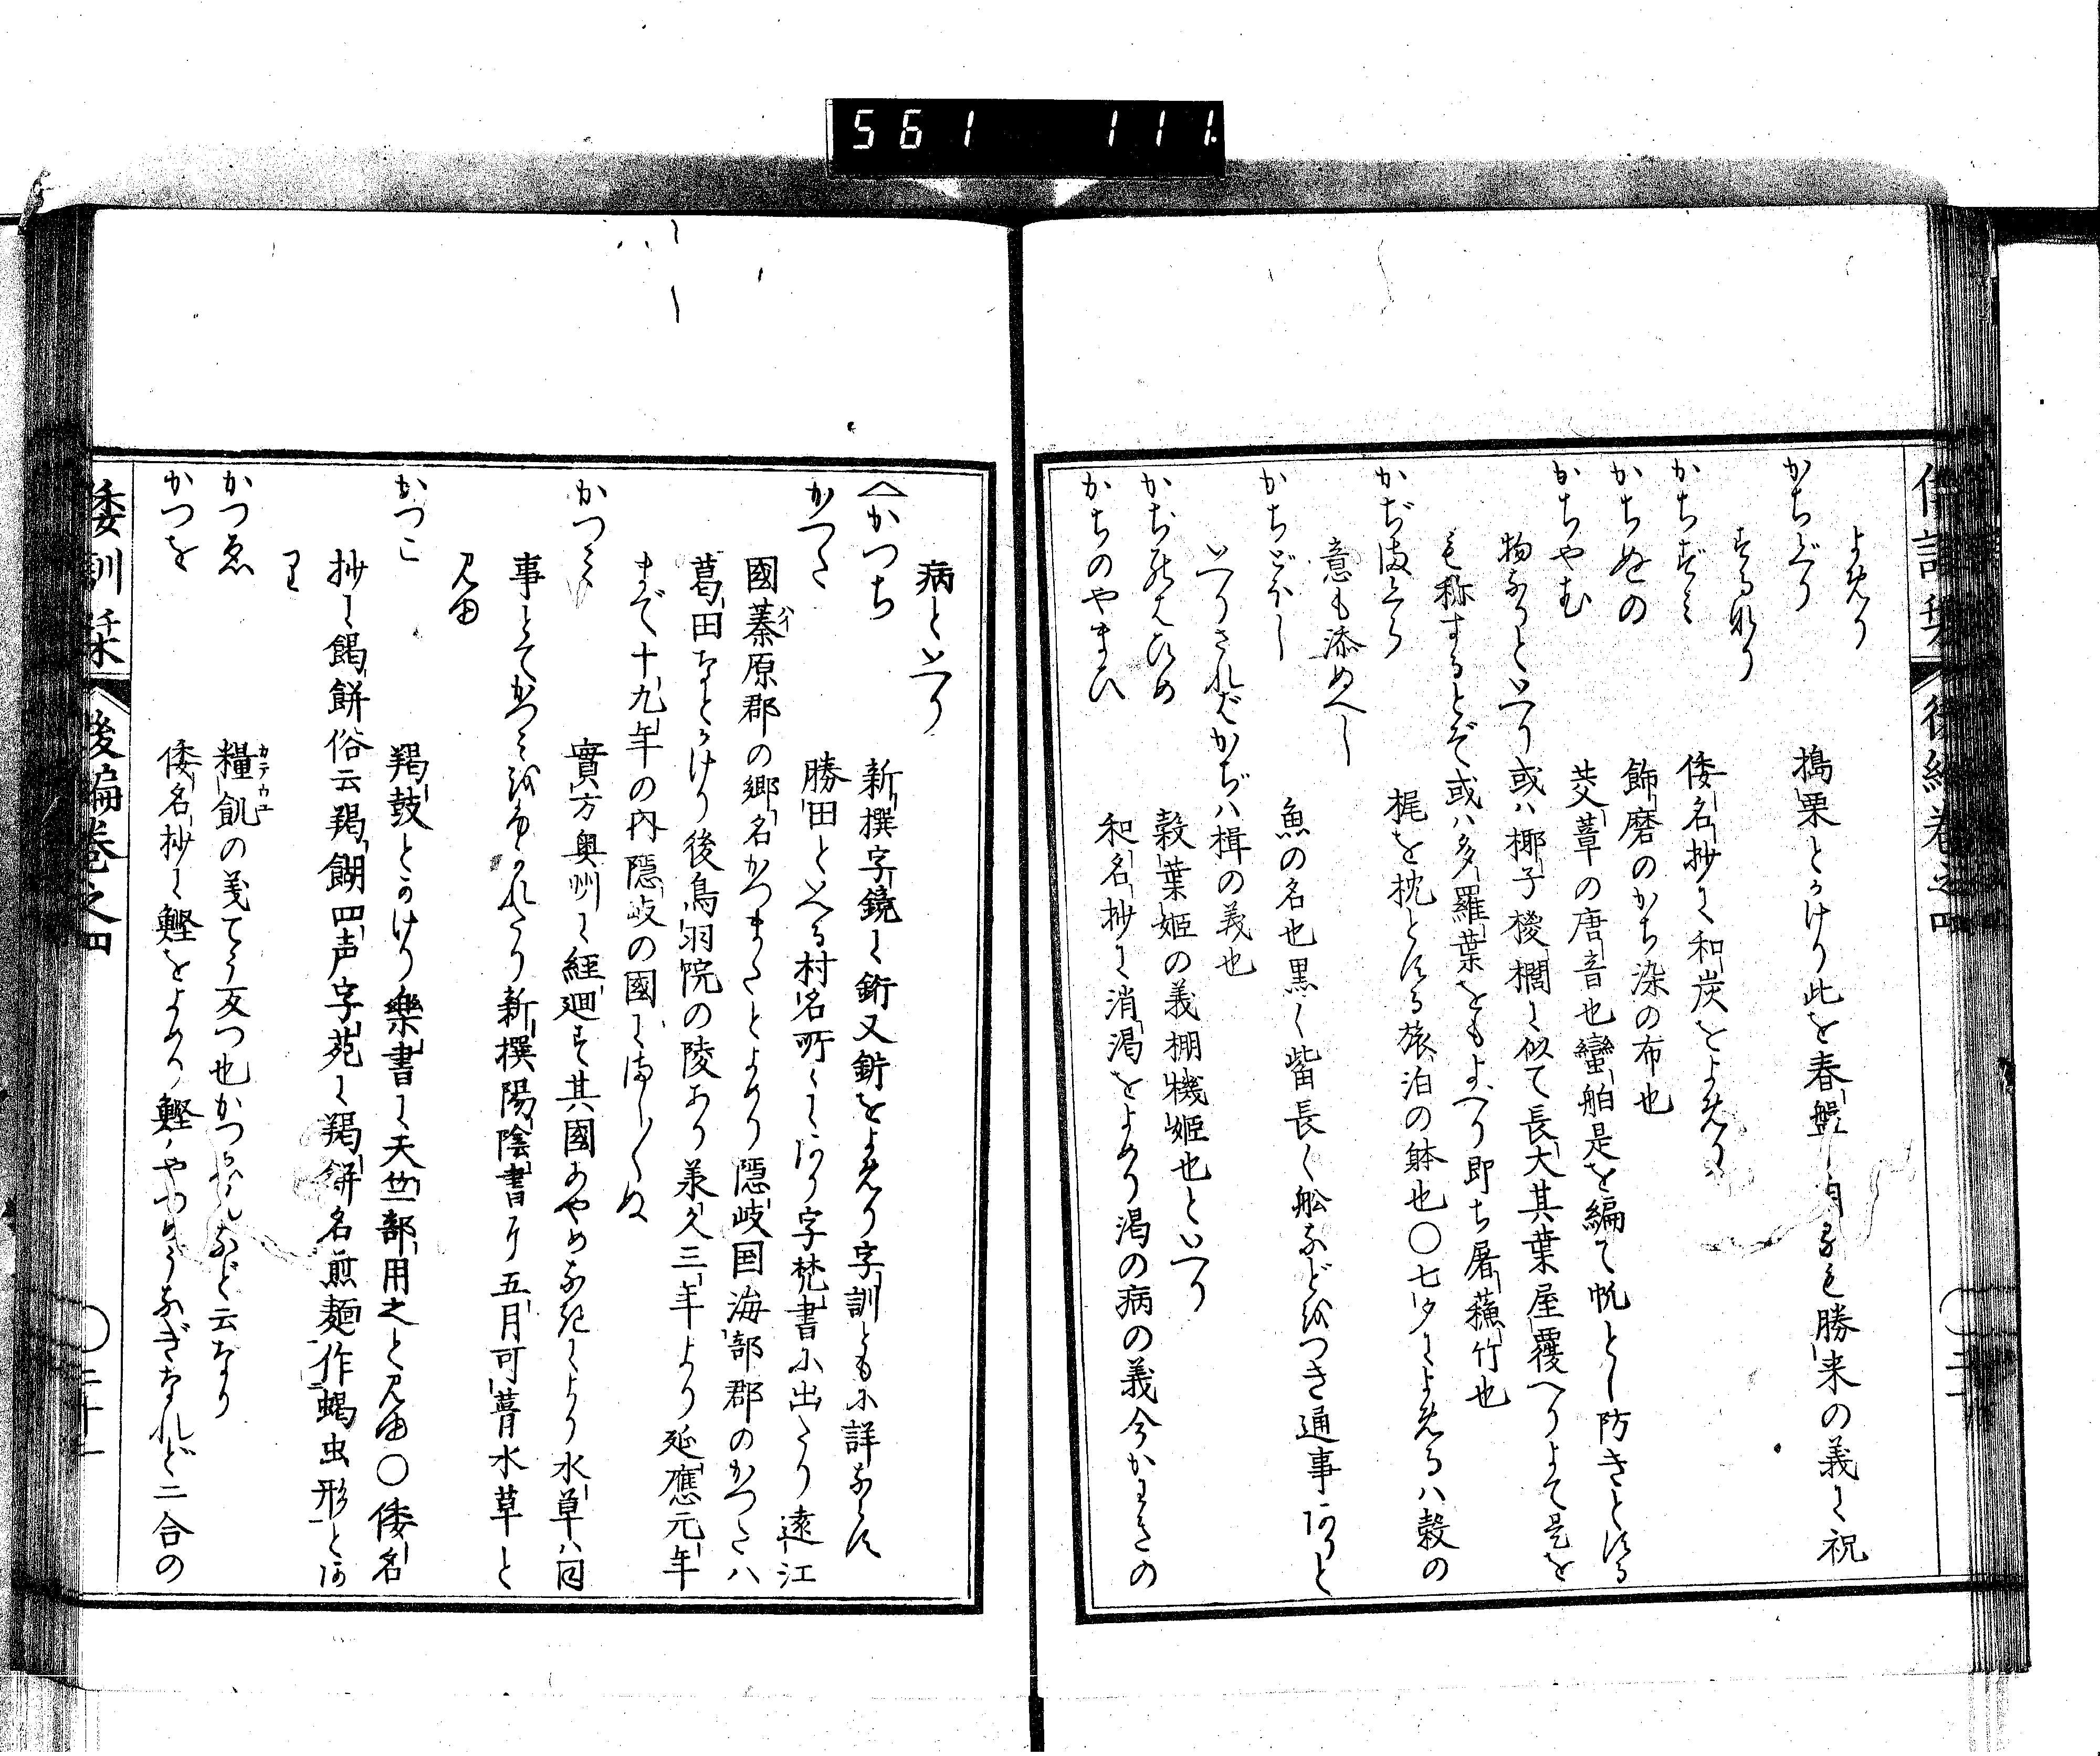 561 111
倭訓栞 後編巻之四
よめり
かちぐり 搗栗とかけり此を春盤に用るも勝来の義に祝
するなり
かちずみ 倭名抄に和炭をよめり
かちぬの 飾磨のかち染の布也
かちやむ 茭蕈の唐音也蠻舶是を編て帆とし防きとする
物なりといへり或ハ椰子椶櫚に似て長大其葉屋覆へりよて是を
も称するとぞ或ハ多羅葉をもよべり即ち屠蘓竹也
かぢまくら 梶を枕とする旅泊の躰也〇七夕によめるハ穀の
意も添ぬへし
かちどほし 魚の名也黒く觜長く舩などをつき通事ありと
いへりされバかぢハ楫の義也
かぢのはひめ 穀葉姫の義棚機姫也といへり
かちのやまひ 和名抄に消渇をよめり渇の病の義今かわきの
病といへり
かつち 新撰字鏡に銒又錺をよめり字訓ともに詳ならす
かつた 勝田といへる村名所々にあり字梵書に出たり遠江
國蓁原郡の郷名かつまたとよめり隠岐国海部郡のかつたハ
葛田なとかけり後鳥羽院の陵あり羕久三年より延應元年
まで十九年の内隠岐の國にましましぬ
かつみ 實方奥州に経廻す其國あやめなきにより水草ハ同
事とてかつみをふかれたり新撰陽陰書に五月可葺水草と
見ゆ
かつこ 羯鼓とかけり樂書に天竺部用之と見ゆ〇倭名
抄に餲餅俗云羯餬四声字苑に羯餅名煎麺作蝎虫形とあ
り
かつゑ 糧飢の義てう反つ也かつかれなど云なり
かつを 倭名抄に鰹をよめり鰹ハやつめうなぎなれど二合の
倭訓栞 後編巻之四 〇二十一